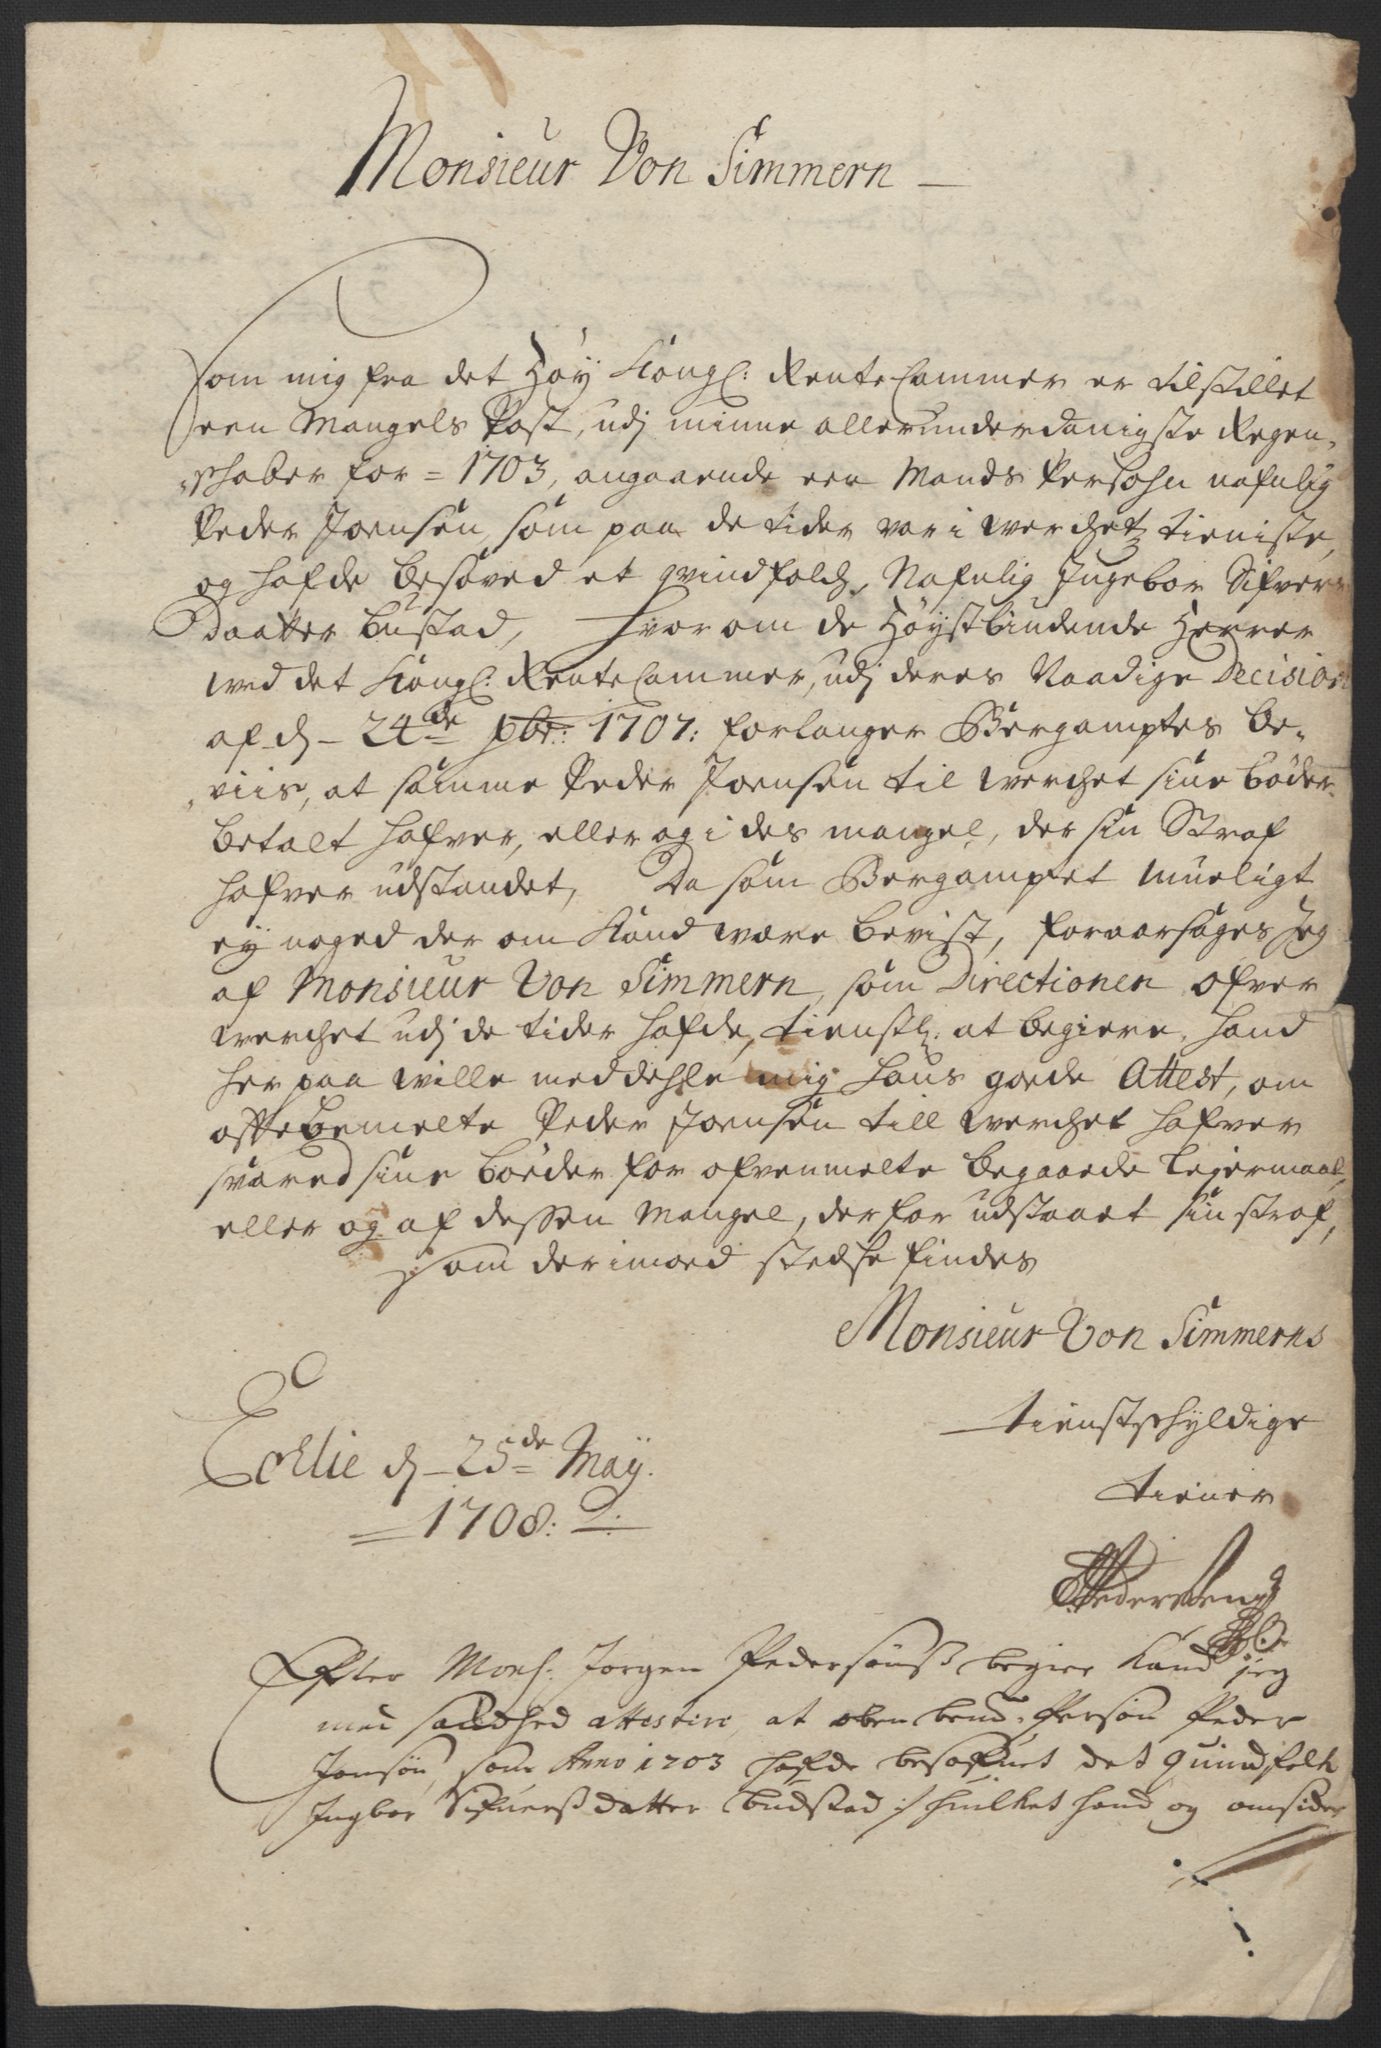 Monsieur Von Simmern
Som mig fra det Höy Kongl: Rente Cammer er tilstillet
een Mangels Post, udj minne allerunderdanigste Regen-
schaber for = 1703, angaaende een Mands Persohn nafnlig
Peder Joensön, som paa de tider var i werchetz tieniste,
og hafde besöved et qvindfolch, Nafnlig Ingebor Sifvers
Daatter Bustad, Hvorom de Höystbiudende Herrer
wed det Kongl: Rente Cammer, udj deres Naadige Decision
af d - 24de 9br: 1707: forlanger Bergamptes be-
viis, at samme Peder Joensön til werchet sine böder
betalt hafver, eller og i des mangel, der sin Straf
hafver udstandet, Da som Bergamptet mueligt
ey noged der om kand være bevist, foraarsages Jeg
af Monsieur Von Simmern, som Directionen ofver
werchet udj de tider hafde, tienstl: at begiere, hand
her paa wille meddehle mig hans goede Attest, om
oftebemelte Peder Joensön till werchet hafver
svared sine böeder for ofvenmelte begaaede Lejermaal,
eller og af dessen Mangel, derfor udstaaet sin straf,
som derimoed stedse findes
Monsieur Von Simmerns
tienstschyldige
tiener
Echlie d - 25de Maÿ.
1708:
Efter Mons: Jörgen Pedersönß begier kand jeg
med sandhed attestire, at oben bemd: Person Peder
Jonsön, som Anno 1703 hafde besofuet det quindfolk
Ingbor Sifuerß datter Budstad :/ huilket hand og omsider